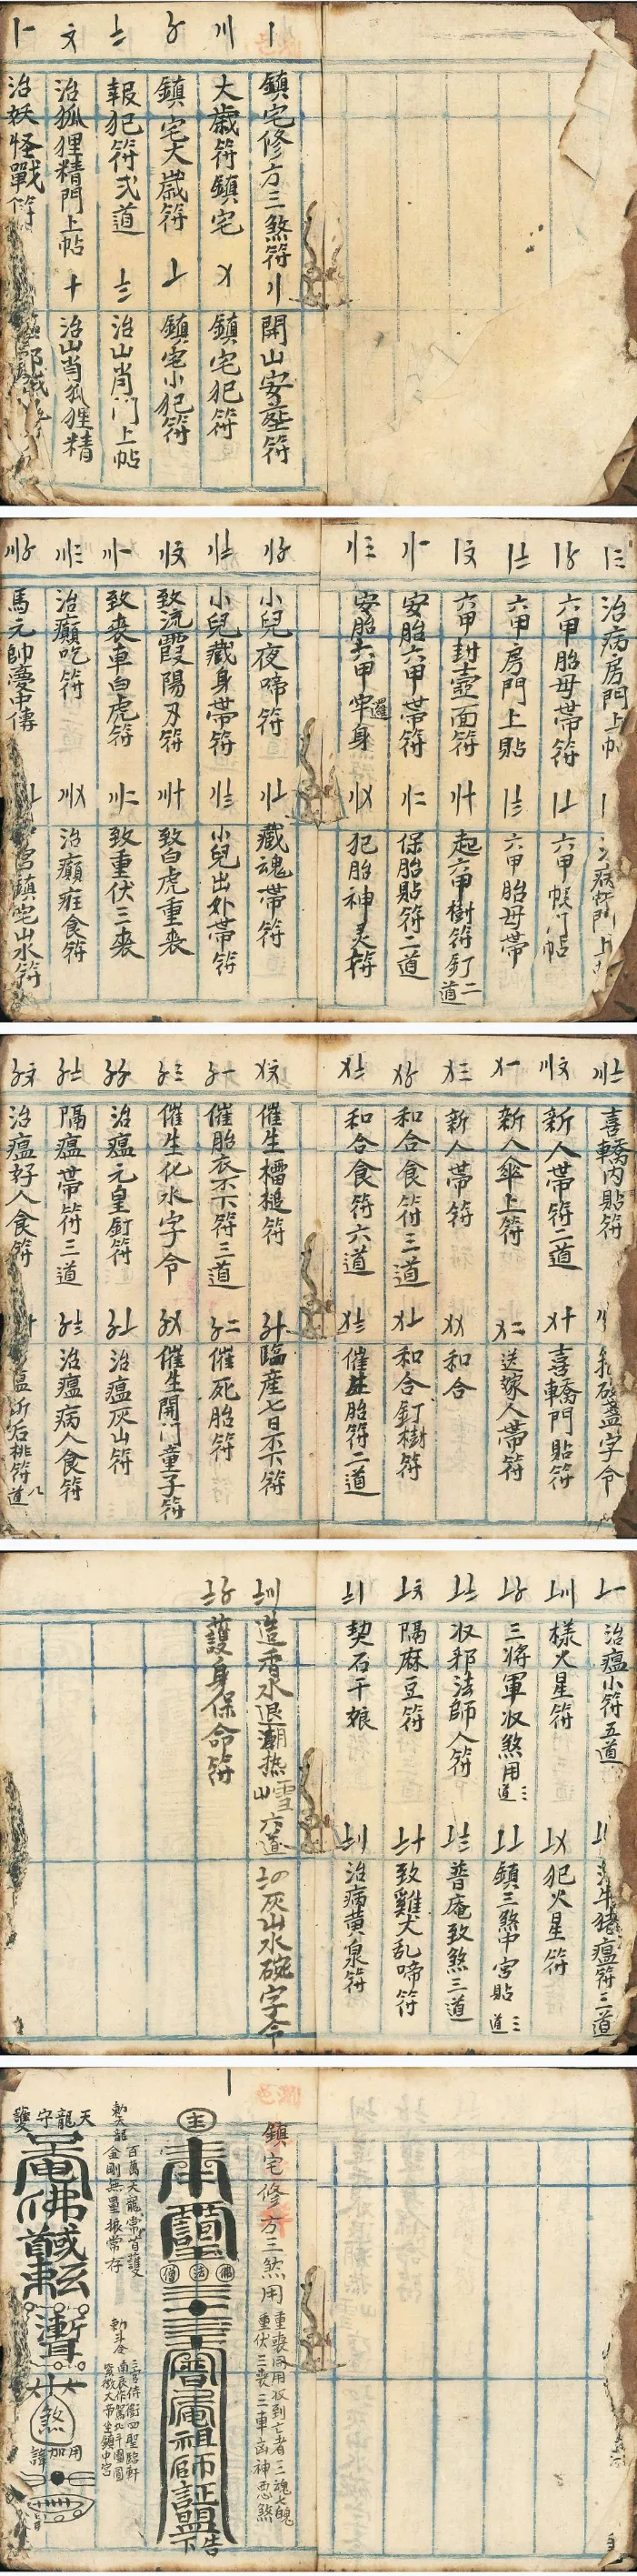 鎮宅修方三煞符
開山安龍符
大歲符鎮宅
鎮宅犯符
鎮宅大歲符
鎮宅小犯符
報犯符弍道
治山肖門上帖
治狐狸精門上帖
治山肖狐狸精
治妖怪戰符
治病房門上
六甲胎母帶符
六甲帳門帖
六甲房門上貼
六甲胎母帶
六甲封壺面符
起六甲樹符釘二道
安胎六甲帶符
保胎貼符二道
安胎六甲牢身
犯胎神灵符
小兒夜啼符
藏魂帶符
小兒藏身帶符
小兒出外帶符
致流霞陽刃符
致白虎重喪
致喪車白虎符
致重伏三喪
治癲吃符
治癲症食符
馬元帥憂中傳
宫鎮宅山水符
喜轎內貼符
字令
新人帶符二道
喜轎門貼符
新人傘上符
送嫁人帶符
新人帶符
和合
和合食符三道
和合釘樹符
和合食符六道
催生胎符二道
催生櫺槌符
臨産七日不下符
催胎衣不下符三道
催死胎符
催生化水字令
催生開門童子符
治瘟元皇釘符
治瘟灰山符
隔瘟帶符三道
治瘟病人食符
治瘟好人食符
瘟 后桃符八道
治瘟小符五道
牛猪瘟符三道
樣火星符
犯火星符
三將軍収煞用三道
鎮三煞中宮貼三道
收邪法師人符
普庵致煞三道
隔麻豆符
致雞犬乱啼符
契石干娘
治病黄泉符
造香水退潮热雪山六道
灰山水碗字令
護身保命符
鎮宅修方三煞用
重喪同用收到亡者三魂七魄
重伏三喪三車凶神惡煞
主
佛
法
僧
普庵祖師証盟
告下
百萬天龍常首護
金剛無量振常存
三宫侍衛四聖臨軒
南辰作駕北斗團圓
紫微大帝坐鎮中宫
天龍守護
佛
煞
用加諱